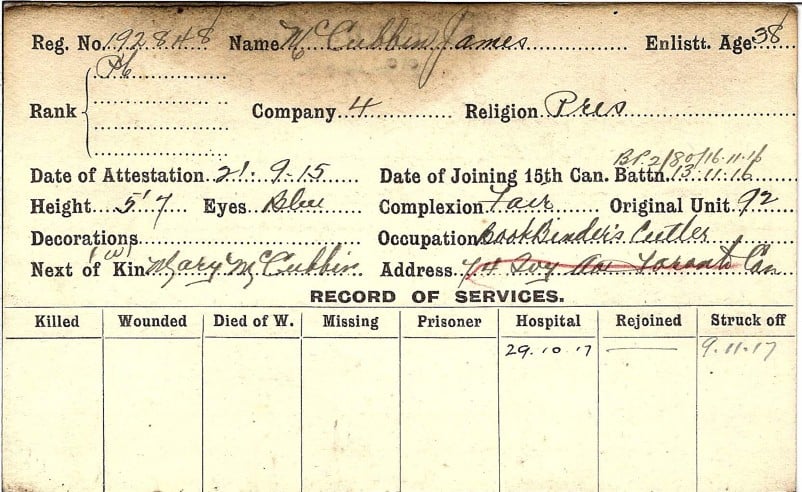 Reg. No. 192848 Name McCubbin James Enlistt. Age 38
Pte
Rank Company 4 Religion Pres
BP.2/80/16.11.16
Date of Attestation 21. 9-15 Date of Joining 15th Can. Battn. 13.11.16
Height 5'7 Eyes Blue Complexion Fair Original Unit 92
Decorations Occupation BookBinder's Cutler
(W)
Next of Kin Mary McCubbin Address 74 Ivy Av Toronto Can
RECORD OF SERVICES.
Killed Wounded Died of W. Missing Prisoner Hospital Rejoined Struck off
29.10.17 9.11.17